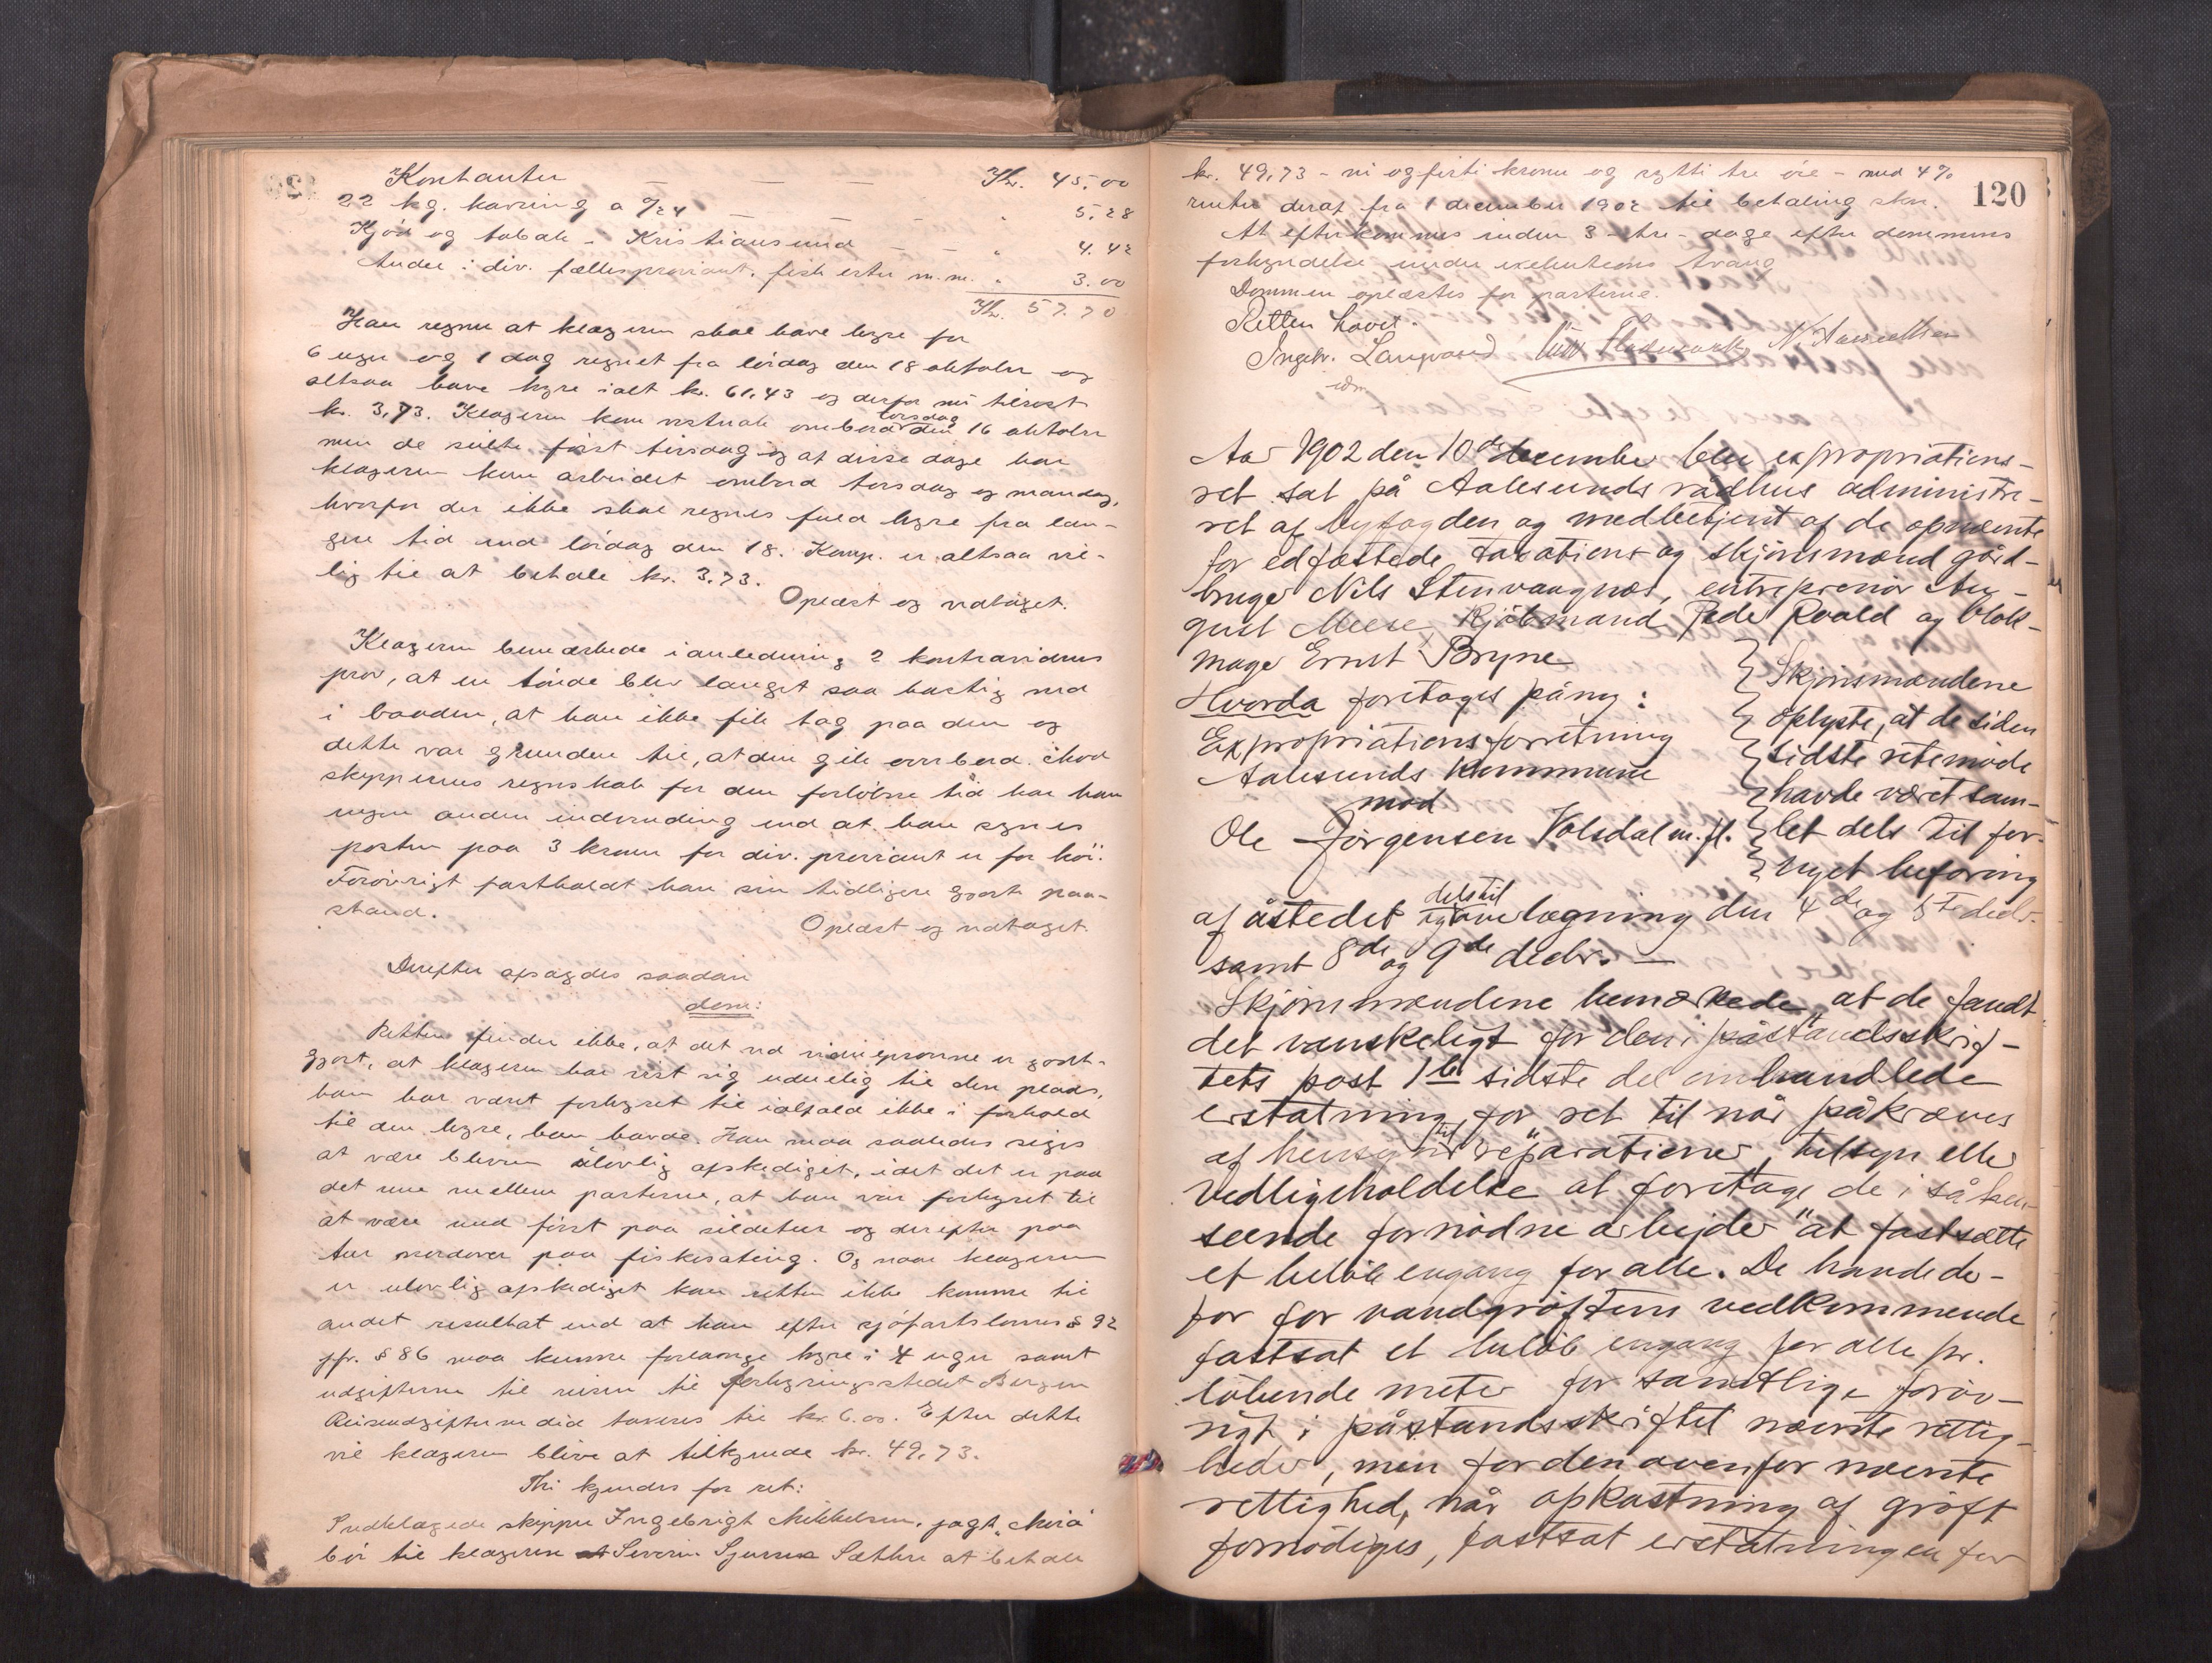 Kontanter — — — Kr. 45.00
22 kg. kavring a 0/24 — — — " 5.28
Kjød og tobak i Kristiansund — — " 4.42
Andel i div. fællesproviant, fisk erter m.m. " 3.00
Kr. 57.70
Han regner at klageren skal have hyre for
6 uger og 1 dag regnet fra lørdag den 18 oktober og
altsaa have hyre ialt kr. 61,43 og derfor nu tilrest
kr. 3,73. Klageren kom vistnok ombord torsdag den 16 oktober
men de seilte først tirsdag og af disse dage har
klageren kun arbeidet ombord torsdag og mandag,
hvorfor der ikke skal regnes fuld hyre fra læn-
gere tid end lørdag den 18. Komp. er altsaa vil-
lig til at betale kr. 3.73.
Oplæst og vedtaget.
Klageren bemærkede i anledning 2 kontravidners
prov, at en tønde blev langet saa hastig ned
i baaden, at han ikke fik tag paa den og
dette var grunden til, at den gik overbord. Mod
skipperens regnskab for den forløbne tid har han
ingen anden indvending end at han synes
posten paa 3 kroner for div. proviant er for høi.
Forøvrigt fastholdt han sin tidligere gjorte paa-
stand.
Oplæst og vedtaget.
Derefter afsagdes saadan
dom:
Retten finder ikke, at det ved vidneprovene er godt-
gjort, at klageren har vist sig uduelig til den plads,
han har været forhyret til ialfald ikke i forhold
til den hyre, han havde. Han maa saaledes siges
at være bleven ulovlig afskediget, idet det er paa
det rene mellem parterne, at han var forhyret til
at være med først paa sildetur og derefter paa
tur nordover paa fiskesalting. Og naar klageren
er ulovlig afskediget kan retten ikke komme til
andet resultat end at han efter sjøfartslovens § 92
jfr. § 86 maa kunne forlange hyre i 4 uger samt
udgifterne til reisen til forhyringsstedet Bergen
Reiseudgifterne did taxeres til kr. 6.00. Efter dette
vil klageren blive at tilkjende kr. 49,73.
Thi kjendes for ret:
Indklagede skipper Ingebrigt Mikkelsen, jagt "Mira"
bør til klageren Severin Sæthre at betale
120
kr. 49,73 – ni og firti kroner og sytti tre øre – med 4 %
renter deraf fra 1 december 1902 til betaling sker.
At efterkommes inden 3 – tre – dage efter dommens
forkyndelse under exekutions tvang
Dommen oplæstes for parterne.
Retten hævet.
Ingebr. Langvand
Aar 1902 den 10de december blev expropriations-
ret sat på Aalesunds rådhus administre-
ret af byfogden og medbetjent af de opnævnte
før edfæstede taxations og skjønsmænd gård-
bruger Nils Stenvaagnæs, entreprenør Au-
gust Meese, Kjøbmand Peder Roald og blok-
mager Ernst Bryne
Hvorda foretoges påny:
Expropriationsforretning
Aalesunds Kommune
mod
Ole Jørgensen Volsdal m. fl.
Skjønsmændene
oplyste, at de siden
sidste retsmøde
havde været sam-
let dels til for-
nyet befaring
af åstedet dels til overlægning den 4de og 5te decbr.
samt 8de og 9de decbr. —
Skjønsmændene bemærkede, at de fandt
det vanskeligt for den i påstandsskrif-
tets post 1 sidste del omhandlede
erstatning for ret til når påkræves
af hensyn til reparationer, tilsyn eller
vedligeholdelse at foretage de i så hen-
seende fornødne arbejder" at fastsætte
et beløb engang for alle. De havde der-
for for vandgrøftens vedkommende
fastsat et beløb engang for alle pr.
løbende meter for samtlige forøv-
rigt i påstandsskriftet nævnte rettig-
heder, men for den ovenfor nævnte
rettighed, når opkastning af grøft
fornødiges, fastsat erstatningen for